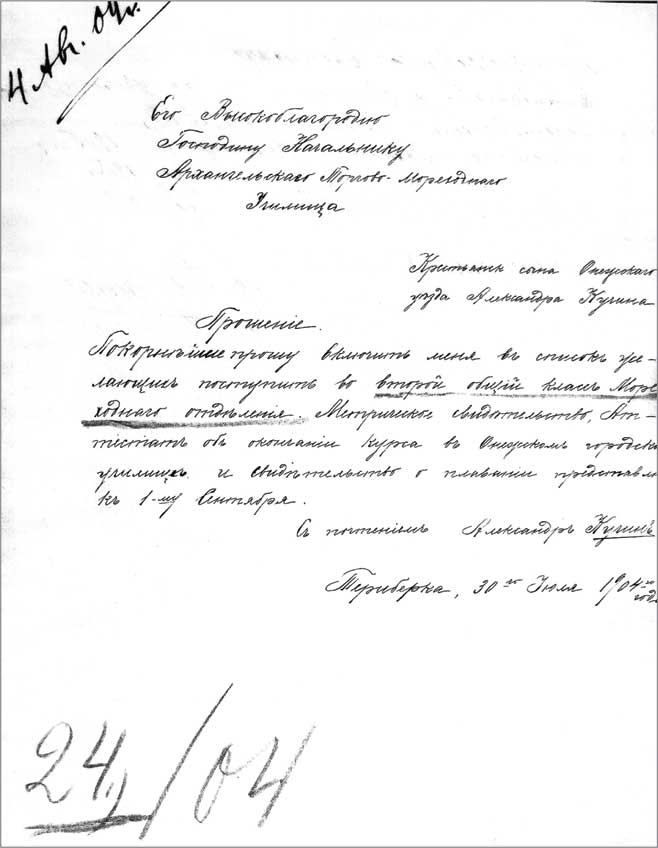 4 Авг. 04 г.
Его Высокоблагородию
Господину Начальнику
Архангельскаго Торгово-Мореходнаго
Училища
Крестьянск сына Онежскаго
уезда Александра Кучина
Прошеніе.
Покорнѣйше прошу включить меня въ списокъ же-
лающихъ поступить во второй общій классъ Море
ходнаго отдѣленія. Метрическое свидѣтельство, Ат-
тестатъ объ окончаніи курса въ Онежскомъ городско
училищѣ и свидѣтельство о плаваніи представлю
къ 1-му Сентября.
Съ почтеніемъ Александръ Кучинъ
Териберка, 30го Іюля 1904го
год
24/04